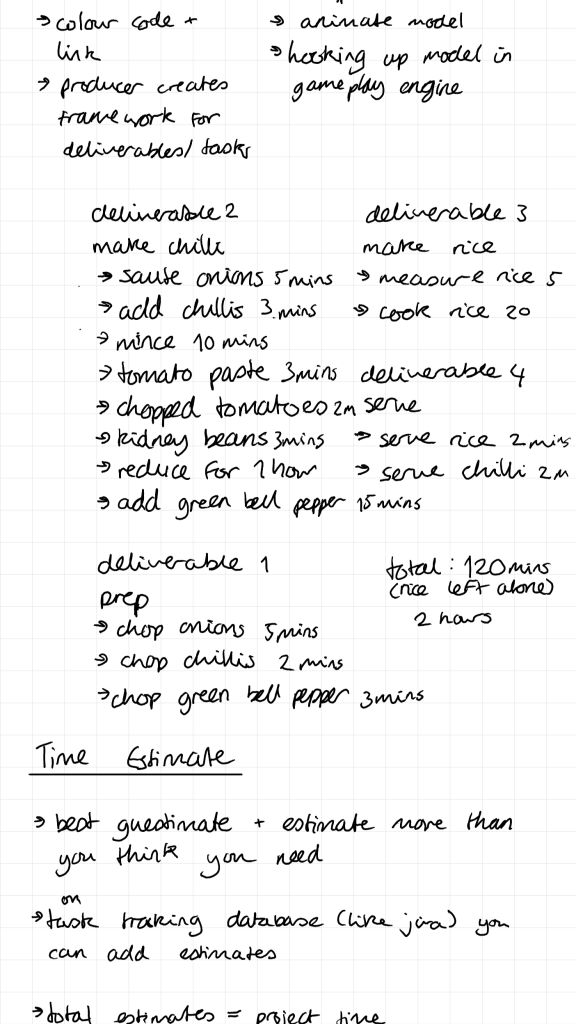 → colour code +
link
→ producer creates
framework for
deliverables/ tasks
→ animate model
→ hooking up model in
gameplay engine
deliverable 2
make chilli
→ saute onions 5 mins
→ add chillis 3 mins
→ mince 10 mins
→ tomato paste 3 mins
→ chopped tomatoes 2m
→ kidney beans 3 mins
→ reduce for 1 hour
→ add green bell pepper 15 mins
deliverable 3
make rice
→ measure rice 5
→ cook rice 20
deliverable 4
serve
→ serve rice 2 mins
→ serve chilli 2m
deliverable 1
prep
→ chop onions 5 mins
→ chop chillis 2 mins
→ chop green bell pepper 3 mins
total : 120 mins
(rice left alone)
2 hours
Time Estimate
→ best guestimate + estimate more than
you think you need
on
→ task traking database (like jira) you
can add estimates
→ total estimates = project time